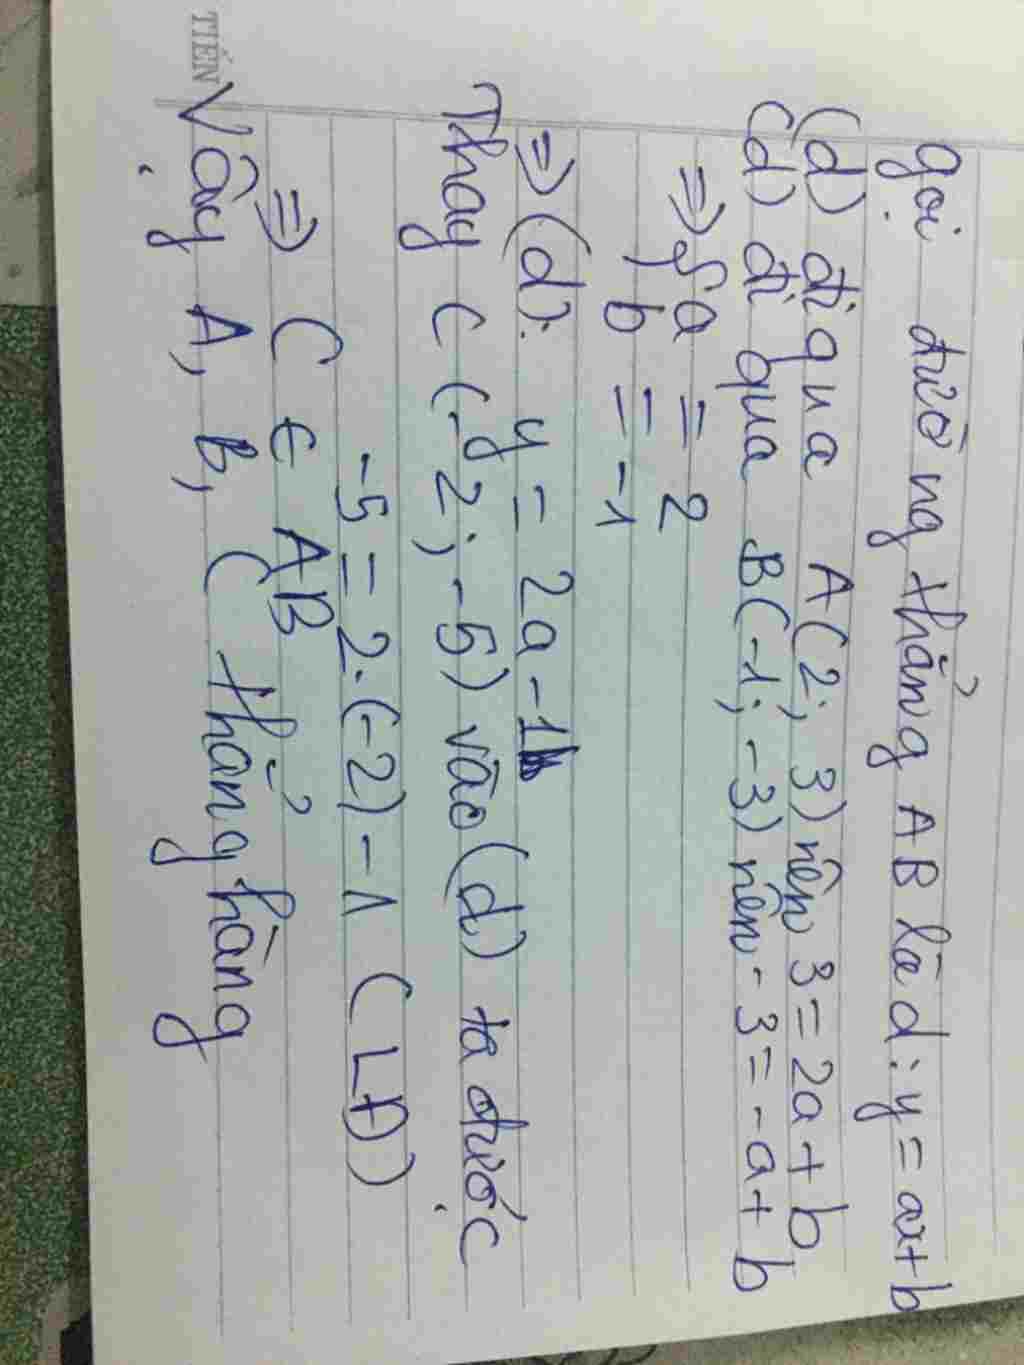 TIẾN
Gọi đường thẳng AB là d: y = ax+b
(d) đi qua A(2; 3) nên 3 = 2a + b
(d) đi qua B(-1; -3) nên -3 = -a + b
=> { a = 2
b = -1
=> (d): y = 2a - 1
Thay C (-2; -5) vào (d) ta được
-5 = 2.(-2) - 1 (LĐ)
=> C ∈ AB
Vậy A, B, C thẳng hàng